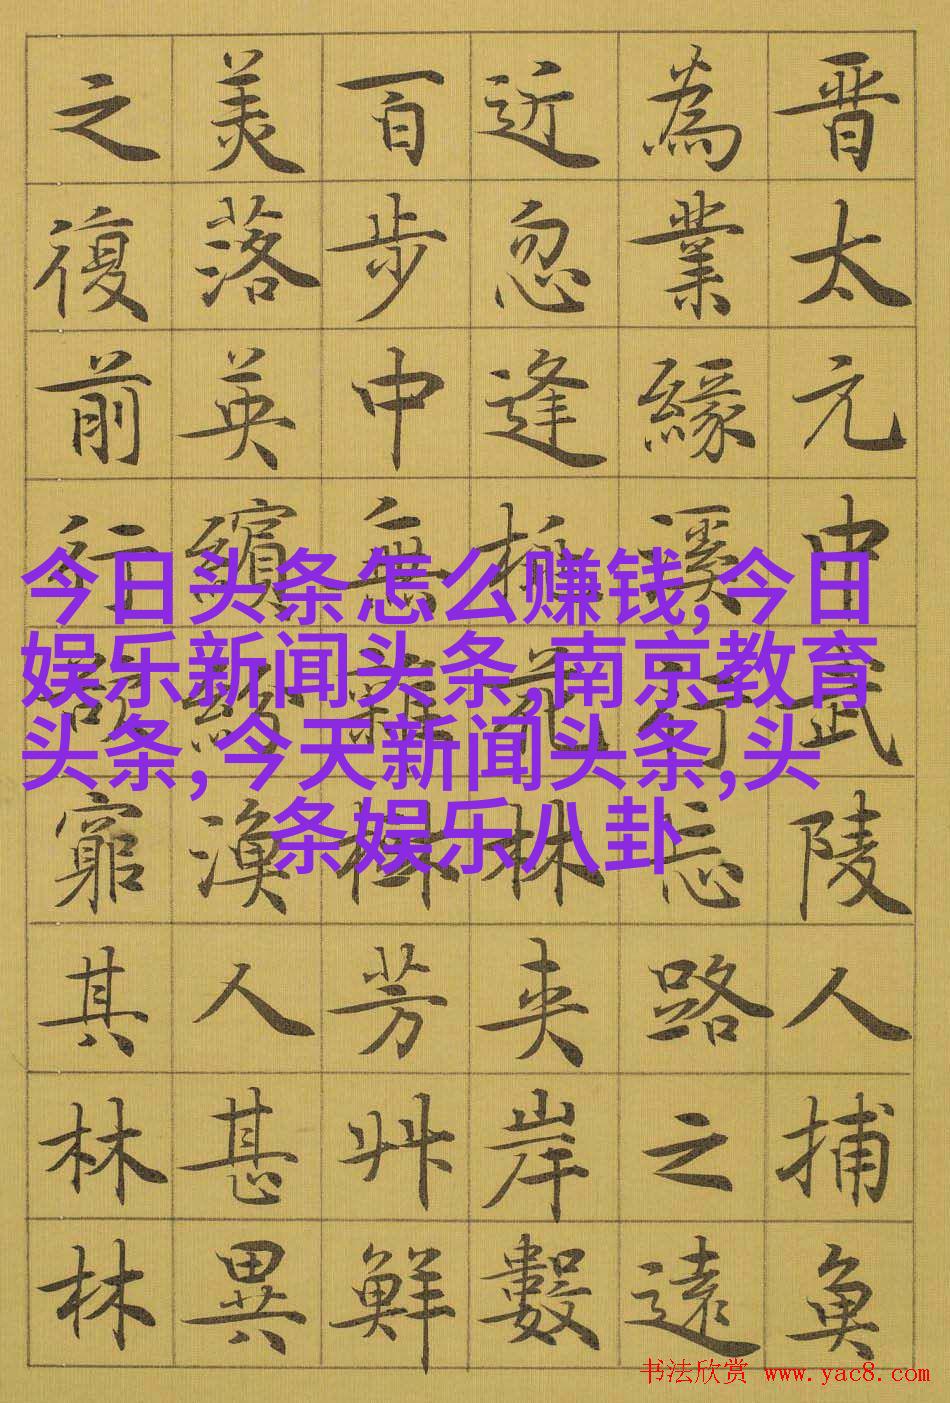 晋太元中武陵人捕魚
為業緣溪行忘路之遠
近忽逢桃花林夾岸數
百步中無雜樹芳艸鮮
美落英繽紛漁人甚異
之復前行欲窮其林林
今日头条怎么赚钱,今日
娱乐新闻头条,南京教育
头条,今天新闻头条,头
条娱乐八卦
书法欣赏 www.yac8.com